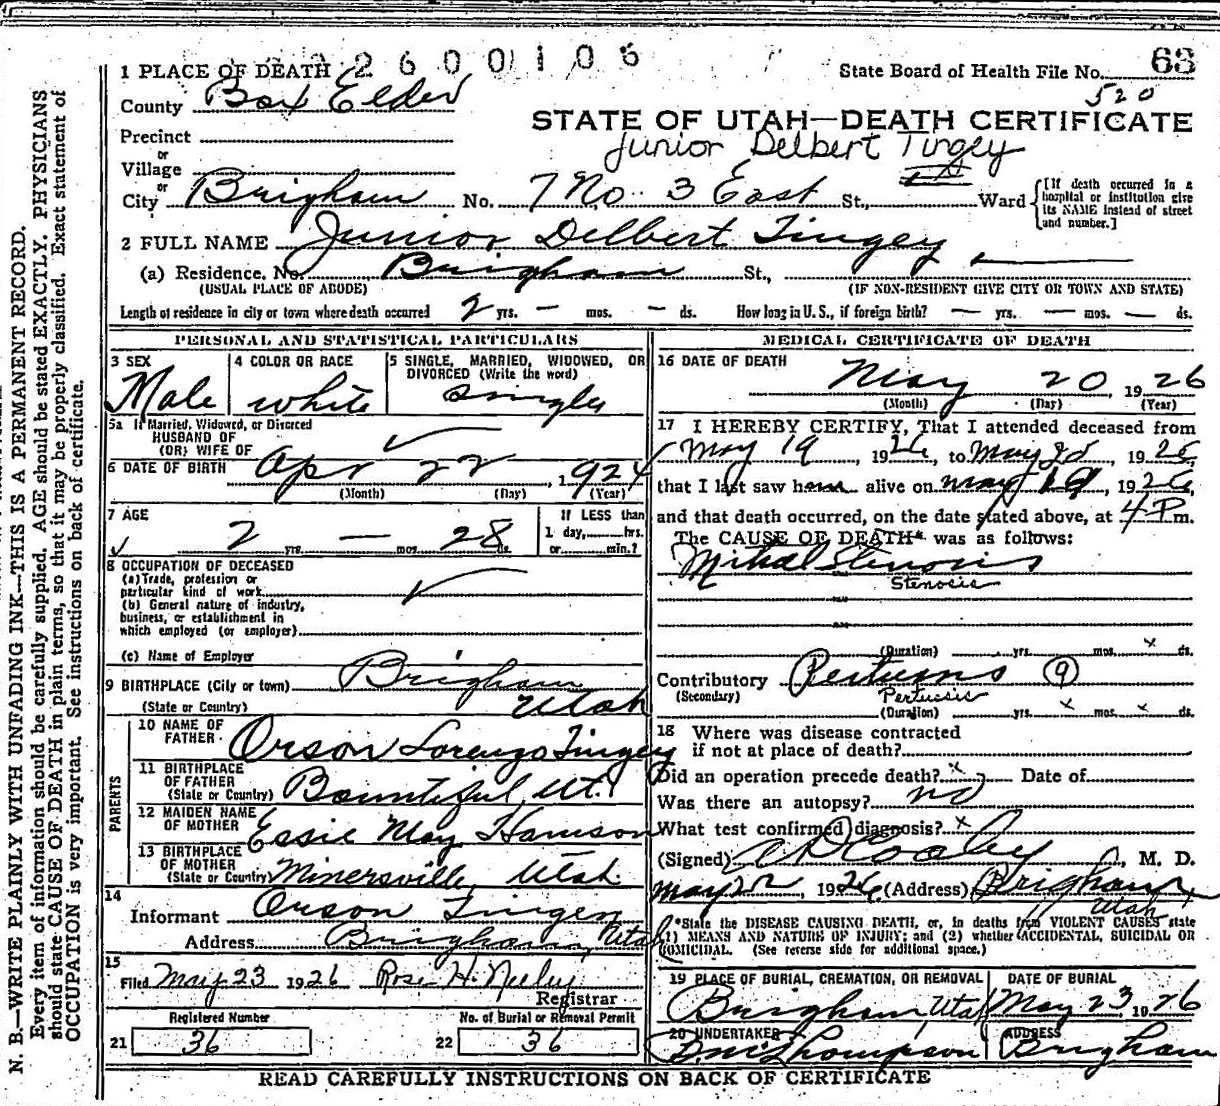 2600106
63
1 PLACE OF DEATH
State Board of Health File No.
520
County Box Elder
STATE OF UTAH—DEATH CERTIFICATE
Precinct
Junior Delbert Tingey
or
Village
or
City Brigham No. 7 No. 3 East St., Ward
[If death occurred in a hospital or institution give its NAME instead of street and number.]
2 FULL NAME Junior Delbert Tingey
(a) Residence. No. Brigham St.,
(USUAL PLACE OF ABODE) (IF NON-RESIDENT GIVE CITY OR TOWN AND STATE)
Length of residence in city or town where death occurred 2 yrs. — mos. — ds. How long in U. S., if foreign birth? — yrs. — mos. — ds.
PERSONAL AND STATISTICAL PARTICULARS
3 SEX
Male
4 COLOR OR RACE
white
5 SINGLE, MARRIED, WIDOWED, OR DIVORCED (Write the word)
Single
5a If Married, Widowed, or Divorced
HUSBAND OF
(OR) WIFE OF
6 DATE OF BIRTH Apr 22, 1924
(Month) (Day) (Year)
7 AGE
2 yrs. — mos. 28 ds.
If LESS than
1 day, hrs.
or min.?
8 OCCUPATION OF DECEASED
(a) Trade, profession or
particular kind of work
(b) General nature of industry,
business, or establishment in
which employed (or employer)
(c) Name of Employer
9 BIRTHPLACE (City or town) Brigham
(State or Country) Utah
PARENTS
10 NAME OF
FATHER Orson Lorenzo Tingey
11 BIRTHPLACE
OF FATHER
(State or Country) Bountiful, Ut.
12 MAIDEN NAME
OF MOTHER Essie May Harrison
13 BIRTHPLACE
OF MOTHER
(State or Country) Minersville, Utah.
14
Informant Orson Tingey
Address Brigham, Utah
15
Filed May 23 1926 Rose H. Neeley
Registrar
Registered Number No. of Burial or Removal Permit
21 36 22 36
MEDICAL CERTIFICATE OF DEATH
16 DATE OF DEATH
May 20, 1926
(Month) (Day) (Year)
17 I HEREBY CERTIFY, That I attended deceased from
May 19, 1926, to May 20, 1926,
that I last saw him alive on May 19, 1926,
and that death occurred, on the date stated above, at 4 P m.
The CAUSE OF DEATH* was as follows:
Mitral Stenosis
Stenosis
(Duration) yrs. mos. x ds.
Contributory Pertussis 9
(Secondary) Pertussis
(Duration) yrs. x mos. x ds.
18 Where was disease contracted
if not at place of death?
Did an operation precede death? x Date of
Was there an autopsy? no
What test confirmed diagnosis? x
(Signed) Cooley, M. D.
May 22, 1926 (Address) Brigham
Utah
*State the DISEASE CAUSING DEATH, or, in deaths from VIOLENT CAUSES state
(1) MEANS AND NATURE OF INJURY; and (2) whether ACCIDENTAL, SUICIDAL OR
HOMICIDAL. (See reverse side for additional space.)
19 PLACE OF BURIAL, CREMATION, OR REMOVAL DATE OF BURIAL
Brigham, Utah May 23, 1926
20 UNDERTAKER ADDRESS
Thompson Brigham
READ CAREFULLY INSTRUCTIONS ON BACK OF CERTIFICATE
N. B.—WRITE PLAINLY WITH UNFADING INK—THIS IS A PERMANENT RECORD.
Every item of information should be carefully supplied. AGE should be stated EXACTLY. PHYSICIANS
should state CAUSE OF DEATH in plain terms, so that it may be properly classified. Exact statement of
OCCUPATION is very important. See instructions on back of certificate.